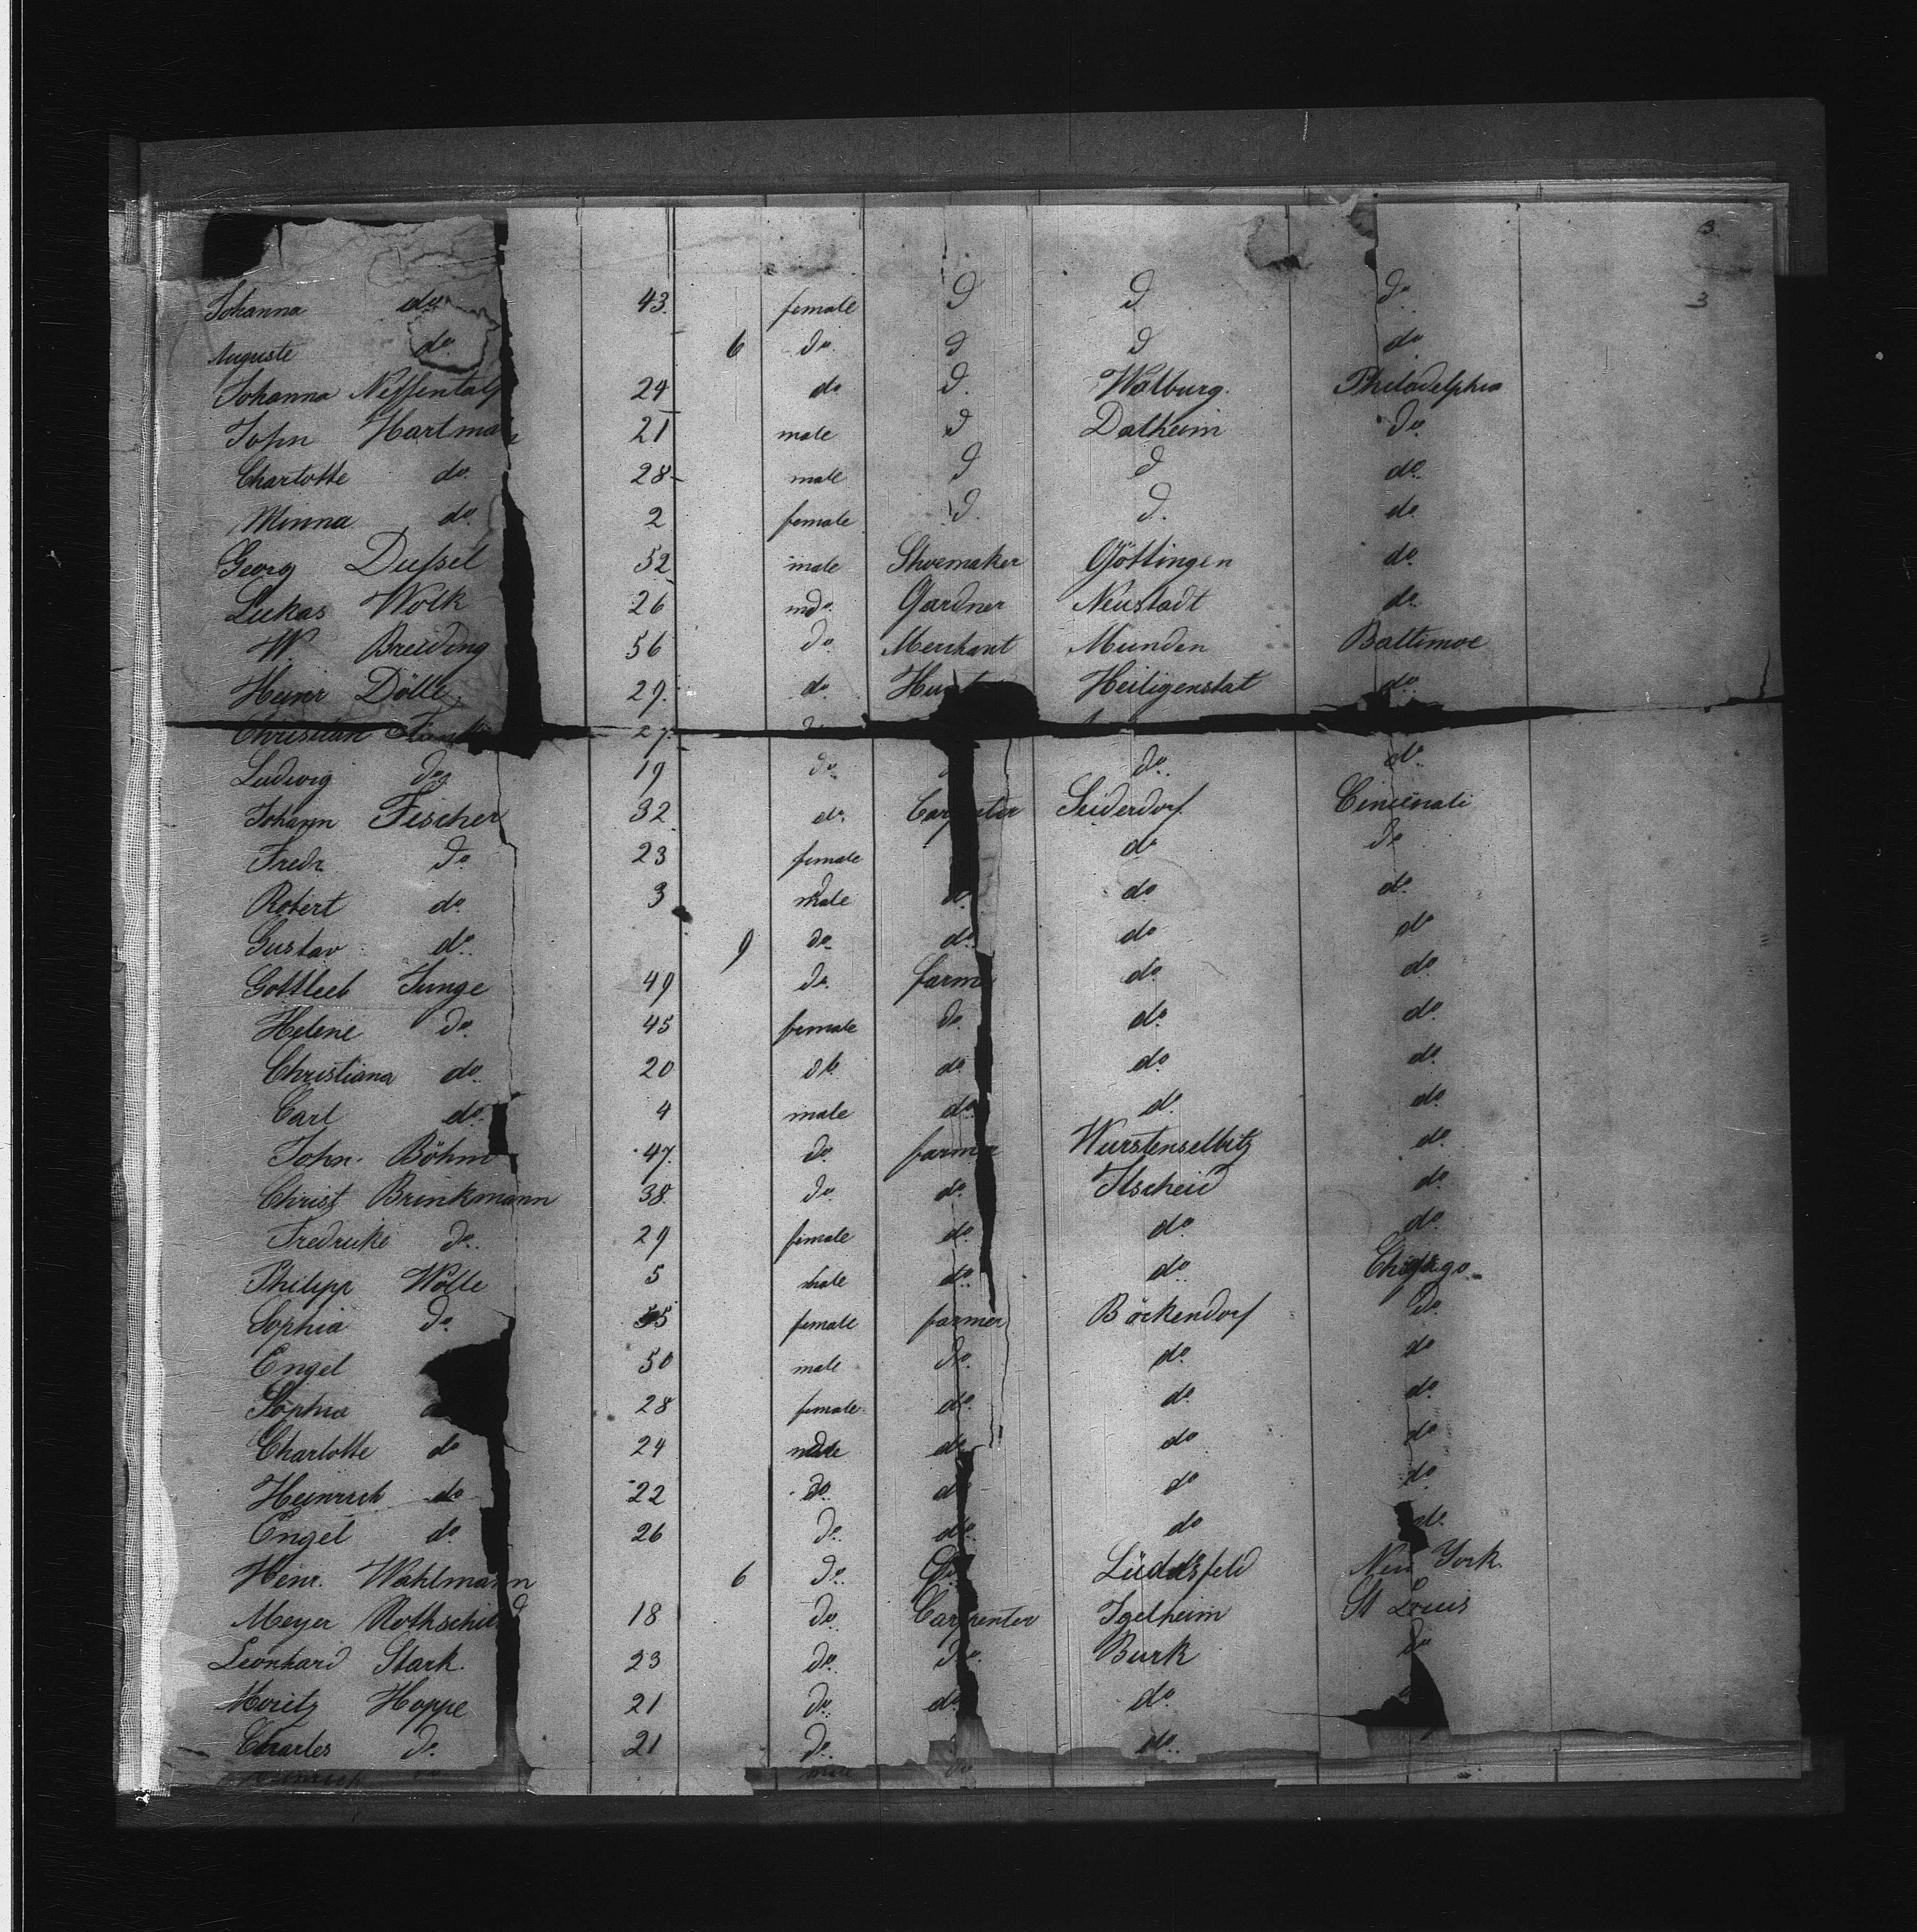 3
Johanna do 43 female d d do 3
Auguste do 6 do d d do
Johanna 24 do d. Walburg. Philadelphia
John Hartman 21 male d Dalheim do
Charlotte do 28 male d d do
Minna do 2 female d. d. do
Georg Dussel 52 male Shoemaker Göttingen do
Lukas Wolk 26 do Gardner Neustadt do
W Breiding 56 do Merchant Munden Baltimoe
Heinr Dölle 29 do Heiligenstat do
Christian 27 do
Ludwig do 19 do do do
Johann Fischer 32 do Carpenter Seiderdorf Cincinati
Fredr do 23 female do do
Robert do 3 male do do do
Gustav do 9 do do do do
Gottlieb Junge 49 do farmer do do
Helene do 45 female do do do
Christiana do 20 do do do do
Carl do 4 male do do do
John. Böhm 47 do farmer Wurstenselbitz do
Christ Brinkmann 38 do do Itscheid do
Fredricke do 29 female do do do
Philipp Wölle 5 male do do Chigago
Sophia do 55 female farmer Böckendorf do
Engel 50 male do do do
Sophia 28 female do do do
Charlotte do 24 do do do
Heinrich do 22 do do do do
Engel do 26 do do do do
Henr. Wahlmann 6 do Lüddsfeld New York.
Meyer Rothschild 18 do Carpenter Igelheim St Louis
Leonhard Stark. 23 do do Burk do
Moritz Hoppe 21 do do do
Charles do 21 do do
Heinrich do male do